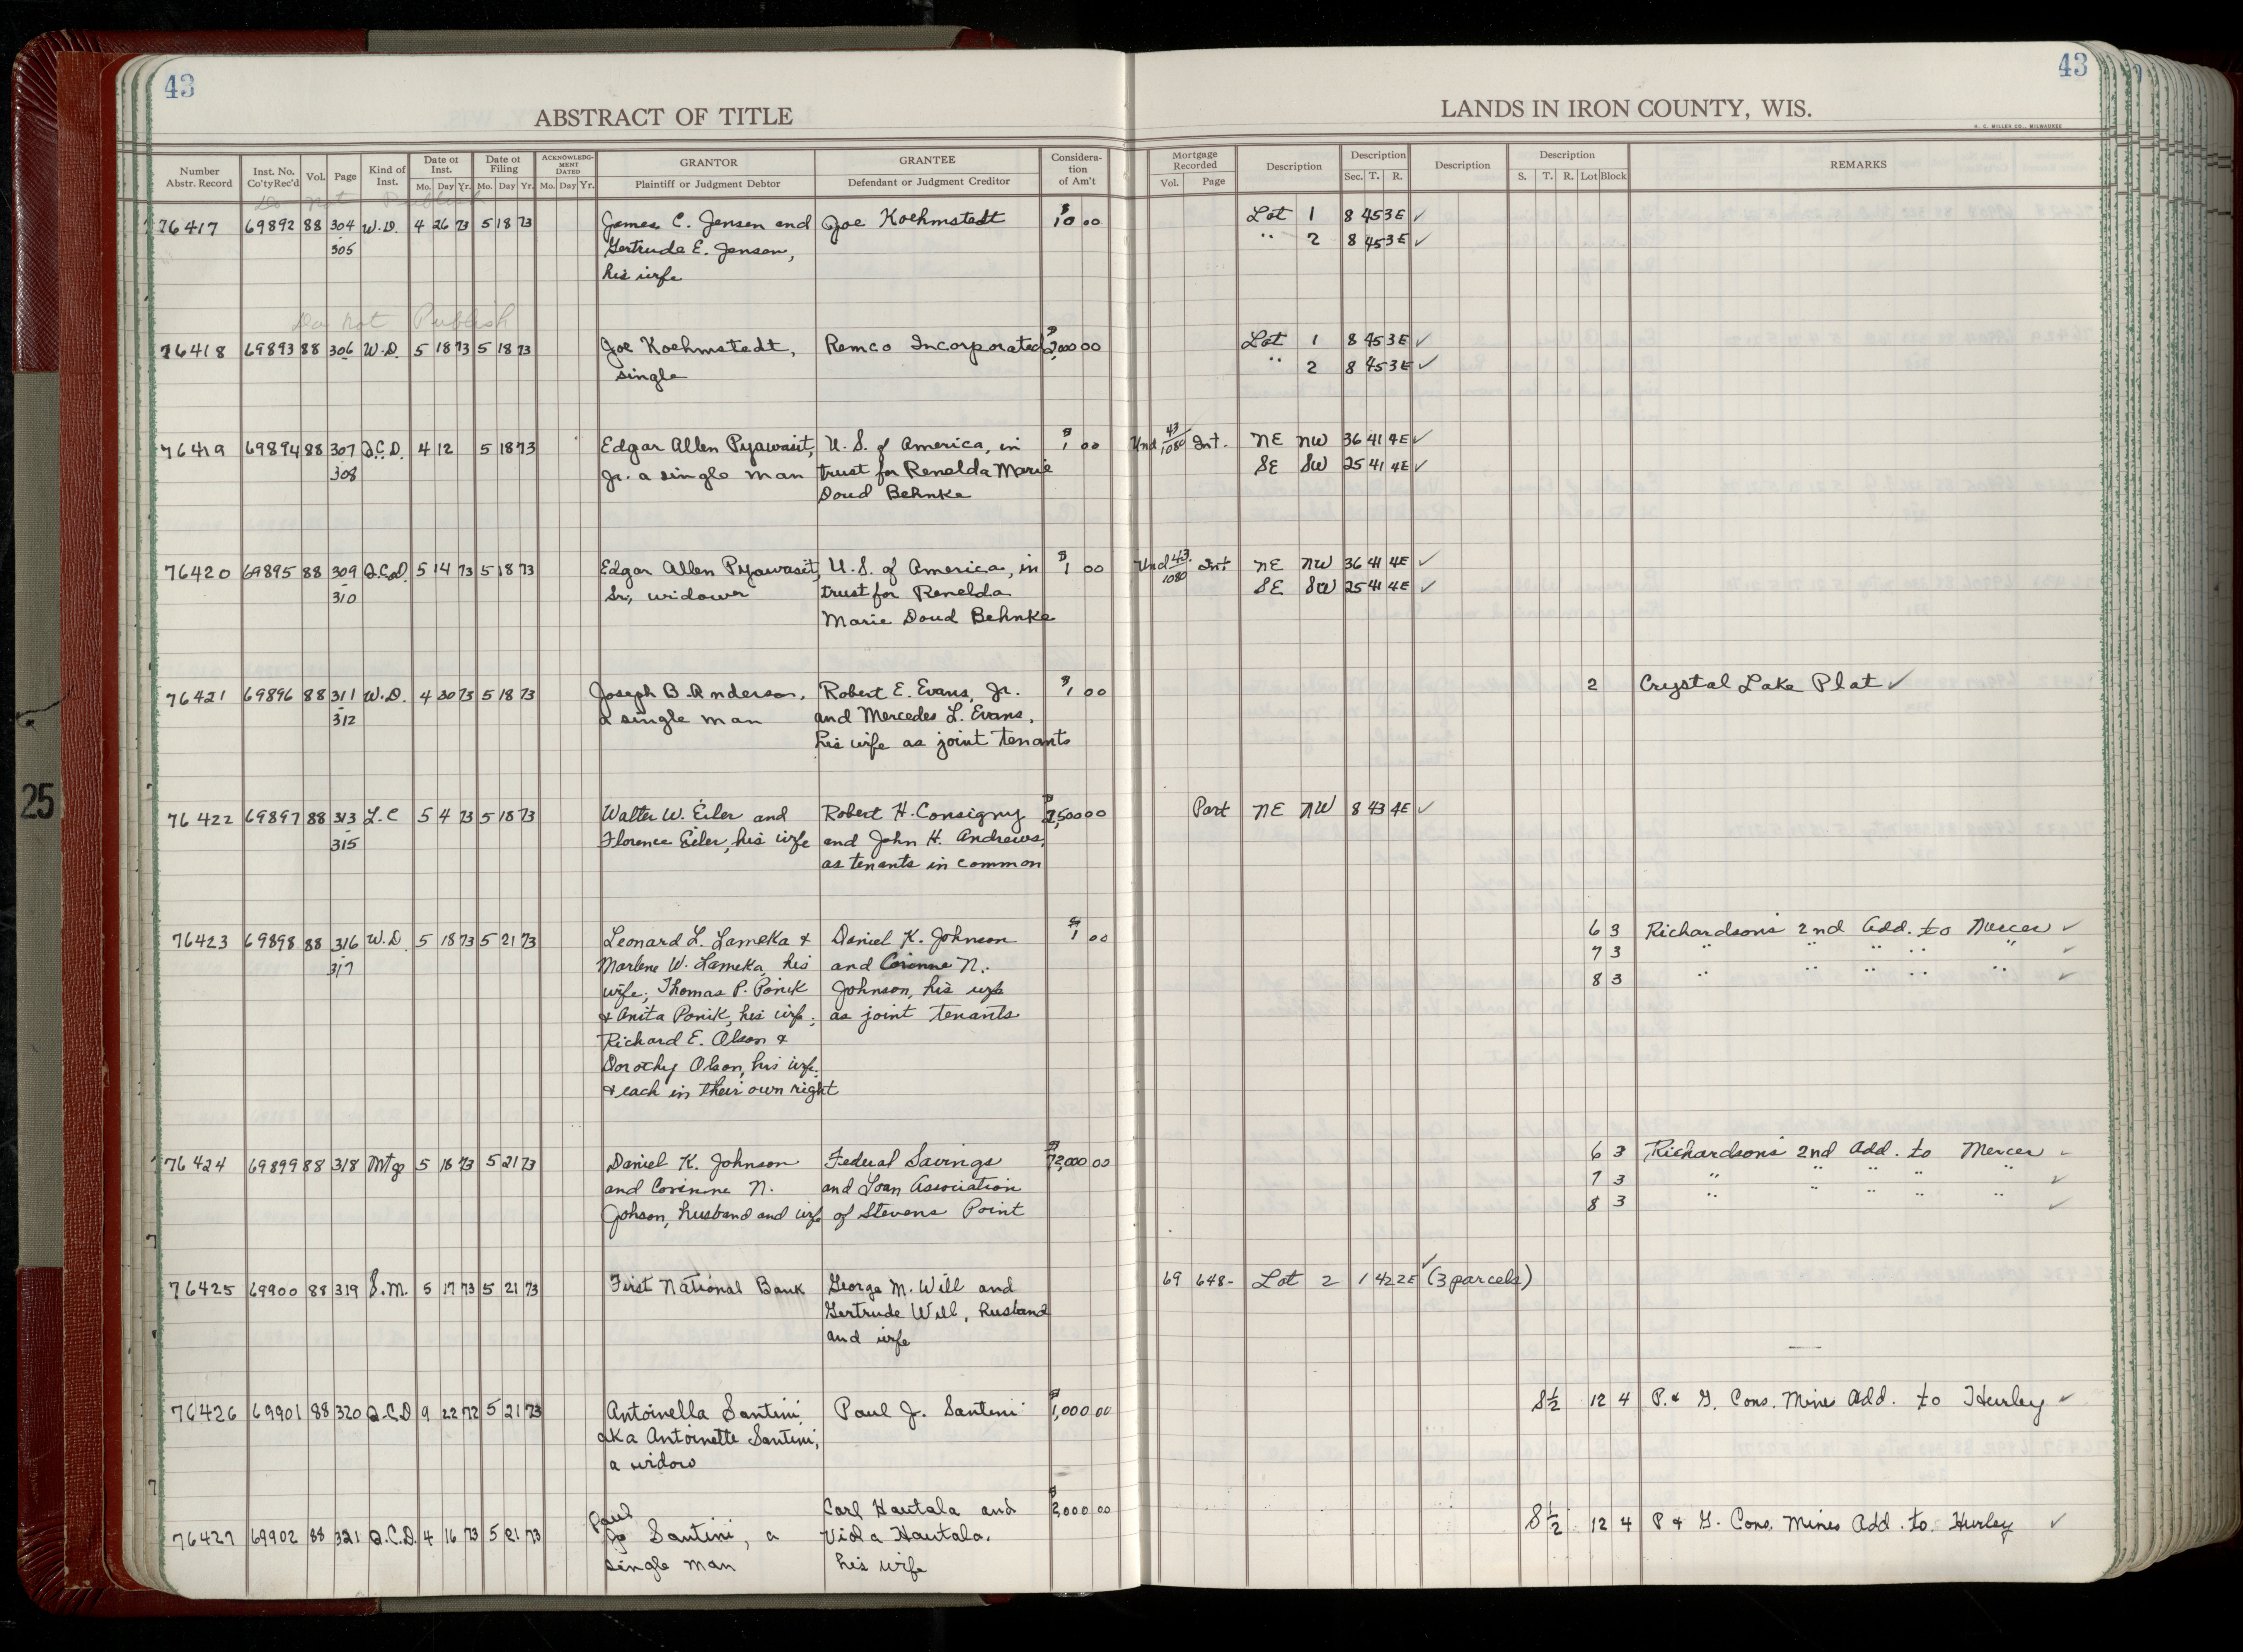 43
43
ABSTRACT OF TITLE
LANDS IN IRON COUNTY, WIS.
H. C. MILLER CO., MILWAUKEE
Number Abstr. Record Inst. No. Co'tyRec'd Vol. Page Kind of Inst. Date of Inst. Mo. Day Yr. Date of Filing Mo. Day Yr. ACKNOWLEDGMENT DATED Mo. Day Yr. GRANTOR Plaintiff or Judgment Debtor GRANTEE Defendant or Judgment Creditor Consideration of Am't Mortgage Recorded Vol. Page Description Description Sec. T. R. Description Description S. T. R. Lot Block REMARKS
Do Not Publish
76417 69892 88 304 W.D. 4 26 73 5 18 73 James C. Jensen and Joe Koehmstedt $10 00 Lot 1 8 45 3E ✓
305 Gertrude E. Jensen, " 2 8 45 3E ✓
his wife
Do Not Publish
76418 69893 88 306 W.D. 5 18 73 5 18 73 Joe Koehmstedt, Remco Incorporated $2,000 00 Lot 1 8 45 3E ✓
single " 2 8 45 3E ✓
76419 69894 88 307 Q.C.D. 4 12 5 18 73 Edgar Allen Pyawasit, U. S. of America, in $1 00 Und 43/1080 Int. NE NW 36 41 4E ✓
308 Jr. a single man trust for Renelda Marie SE SW 25 41 4E ✓
Doud Behnke
76420 69895 88 309 Q.C.D. 5 14 73 5 18 73 Edgar Allen Pyawasit, U. S. of America, in $1 00 Und 43/1080 Int NE NW 36 41 4E ✓
310 Sr., widower trust for Renelda SE SW 25 41 4E ✓
Marie Doud Behnke
76421 69896 88 311 W.D. 4 30 73 5 18 73 Joseph B. Anderson, Robert E. Evans, Jr. $1 00 2 Crystal Lake Plat ✓
312 a single man and Mercedes L. Evans,
his wife as joint tenants
25
76422 69897 88 313 L.C 5 4 73 5 18 73 Walter W. Eiler and Robert H. Consigny 500 00 Part NE NW 8 43 4E ✓
315 Florence Eiler, his wife and John H. Andrews,
as tenants in common
76423 69898 88 316 W.D. 5 18 73 5 21 73 Leonard L. Lameka & Daniel K. Johnson $1 00 6 3 Richardson's 2nd Add. to Mercer ✓
317 Marlene W. Lameka, his and Corinne N. 7 3 " " " " " ✓
wife; Thomas P. Ponik Johnson, his wife 8 3 " " " " " ✓
& Anita Ponik, his wife; as joint tenants
Richard E. Olson &
Dorothy Olson, his wife.
& each in their own right
76424 69899 88 318 Mtge 5 18 73 5 21 73 Daniel K. Johnson Federal Savings $72,000 00 6 3 Richardson's 2nd Add. to Mercer ✓
and Corinne N. and Loan Association 7 3 " " " " " ✓
Johson, husband and wife of Stevens Point 8 3 " " " " " ✓
76425 69900 88 319 S.M. 5 17 73 5 21 73 First National Bank George M. Will and 69 648- Lot 2 1 42 2E ✓ (3 parcels)
Gertrude Will, husband
and wife
76426 69901 88 320 Q.C.D 9 22 72 5 21 73 Antoinella Santini Paul J. Santini $1,000 00 S½ 12 4 P. & G. Cons. Mines Add. to Hurley ✓
aka Antoinette Santini,
a widow
Paul Carl Hautala and $2,000 00
76427 69902 88 321 Q.C.D. 4 16 73 5 21 73 Santini, a Viola Hautala, S½ 12 4 P & G. Cons. Mines Add. to Hurley ✓
single man his wife